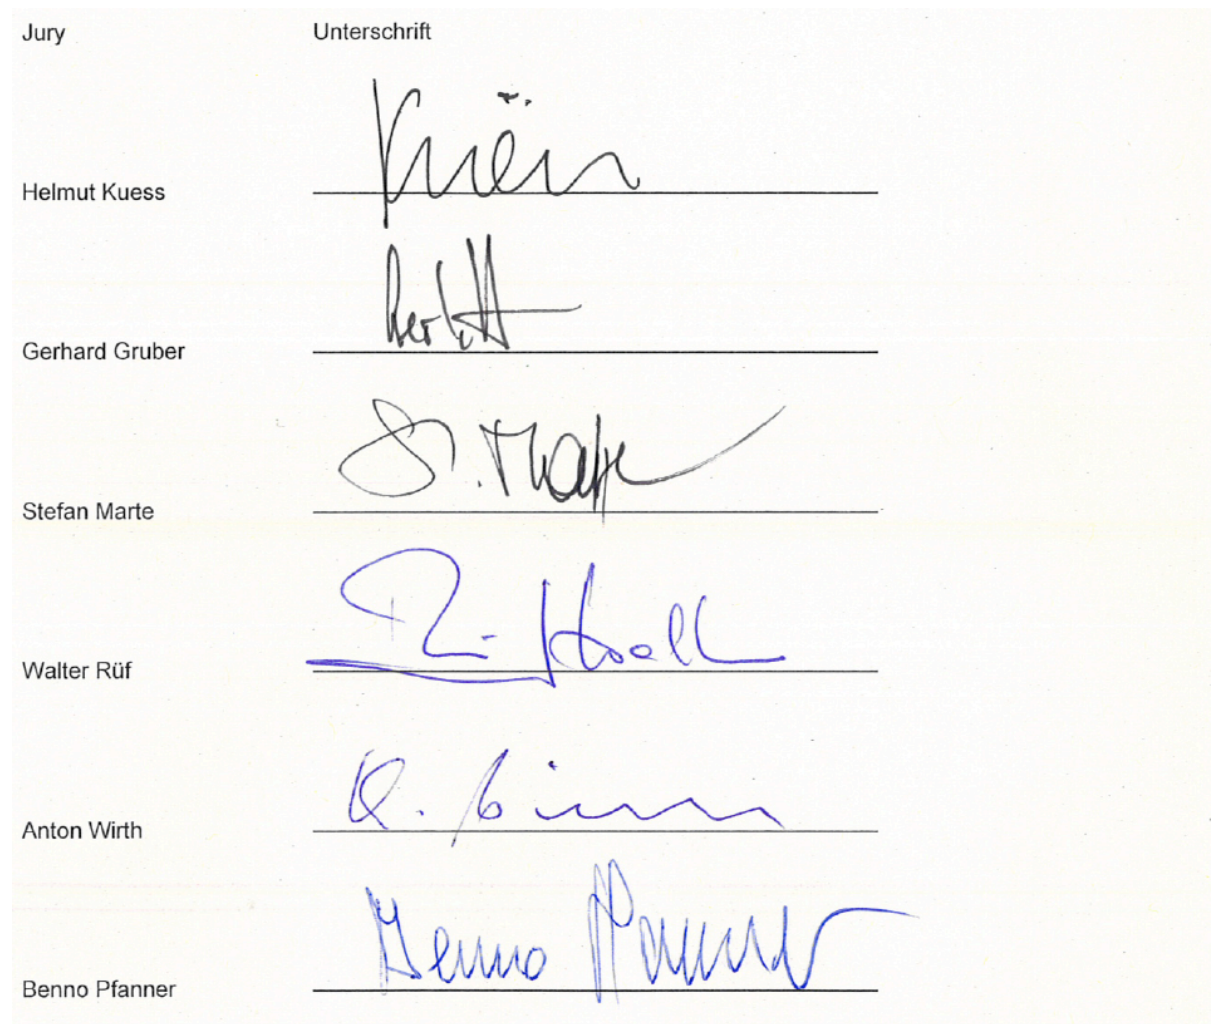 Jury Unterschrift
Helmut Kuess
Gerhard Gruber
Stefan Marte St. Marte
Walter Rüf
Anton Wirth
Benno Pfanner Benno Pfanner